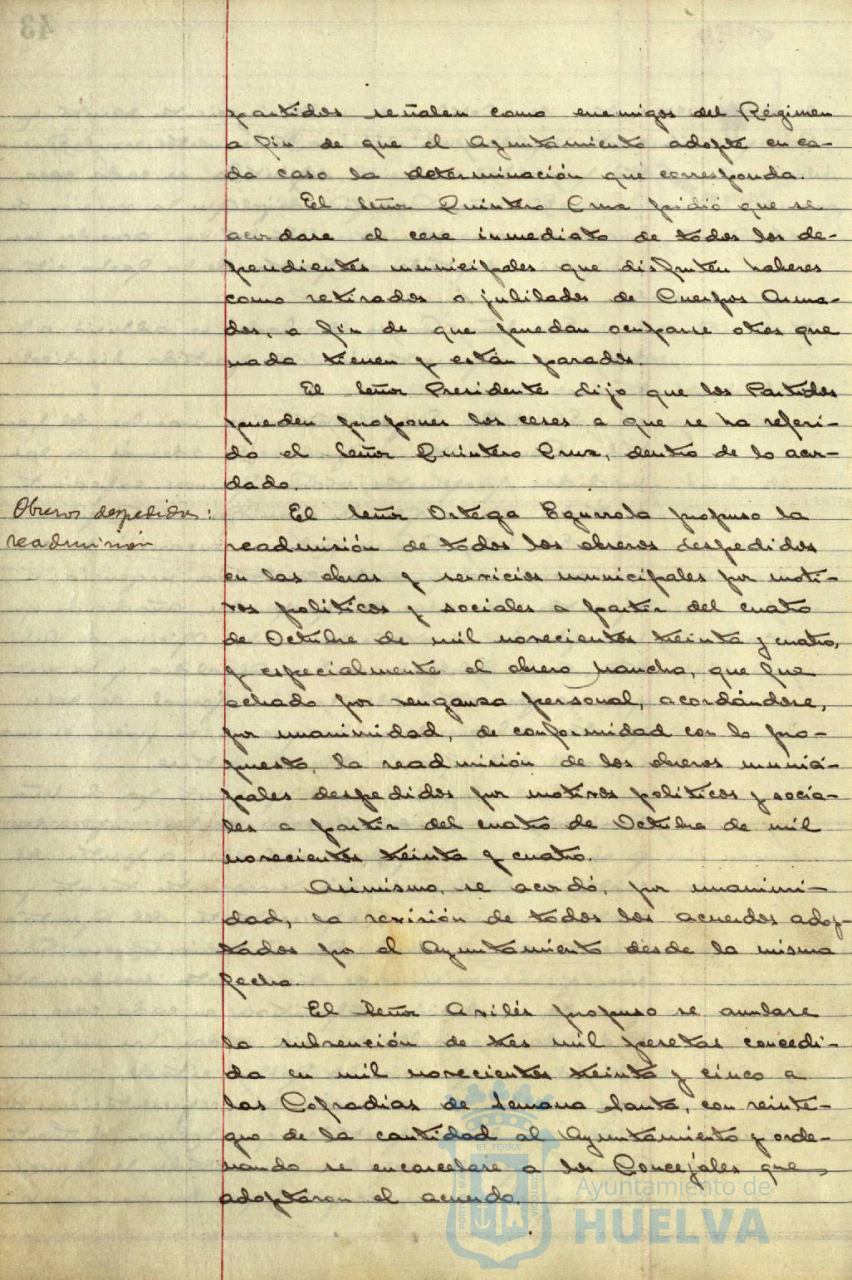 partidos señalen como enemigos del Régimen
a fin de que el Ayuntamiento adopte en ca-
da caso la determinación que corresponda.
El Señor Quintero Cruz pidió que se
acordare el cese inmediato de todos los de-
pendientes municipales que disfruten haberes
como retirados o jubilados de Cuerpos Arma-
dos, a fin de que puedan ocuparse otros que
nada tienen y están parados.
El Señor Presidente dijo que los Partidos
pueden proponer los ceses a que se ha referi-
do el Señor Quintero Cruz, dentro de lo acor-
dado.
Obreros despedidos:
readmisión
El Señor Ortega Egurrola propuso la
readmisión de todos los obreros despedidos
en las obras y servicios municipales por moti-
vos políticos y sociales a partir del cuatro
de Octubre de mil novecientos treinta y cuatro,
y especialmente el obrero Mancha, que fue
echado por venganza personal, acordándose,
por unanimidad, de conformidad con lo pro-
puesto, la readmisión de los obreros munici-
pales despedidos por motivos políticos y socia-
les a partir del cuatro de Octubre de mil
novecientos treinta y cuatro.
Asimismo, se acordó, por unanimi-
dad, la revisión de todos los acuerdos adop-
tados por el Ayuntamiento desde la misma
fecha.
El Señor Avilés propuso se anulase
la subvención de tres mil pesetas concedi-
da en mil novecientos treinta y cinco a
las Cofradías de Semana Santa, con reinte-
gro de la cantidad al Ayuntamiento y orde-
nando se encarcelare a los Concejales que
adoptaron el acuerdo.
Ayuntamiento de
HUELVA